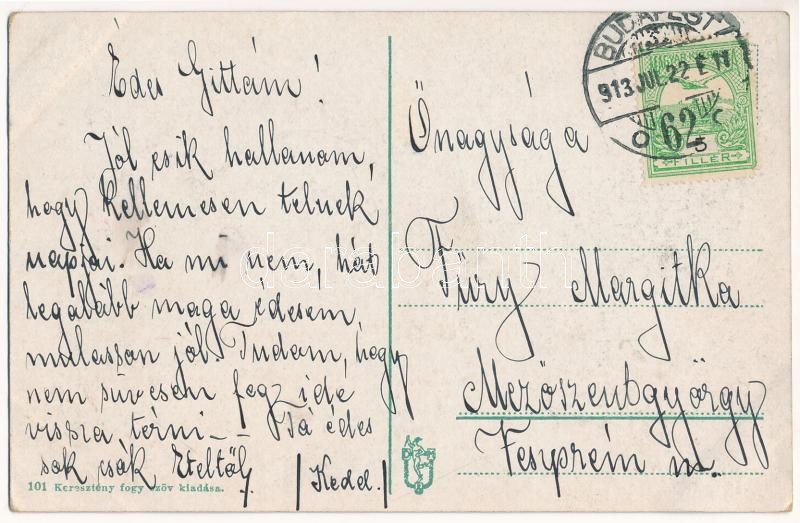 Édes Gittám!
Jól esik hallanom,
hogy kellemesen telnek
napjai. Ha mi nem, hát
legalább maga édesem,
mulasson jól. Tudom, hogy
nem szivesen fog ide
vissza térni -- Pá édes
sok csók Eteltől,
/Kedd./
101 Keresztény fogy szöv kiadása.
BUDAPEST
913 JUL 22
62
5
FILLÉR
Őnagysága
Fűry Margitka
Mezőszentgyörgy
Veszprém m.
darabanth